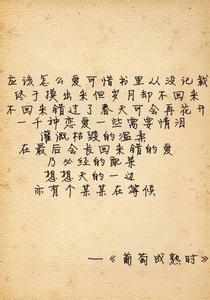 应该怎么爱可惜书里从没记载
终于摸出来但岁月却不回来
不回来错过了春天可会再花开
一千种恋爱一些需要情泪
灌溉枯毁的温柔
在最后会长回来错的爱
乃必经的配菜
想想天的一边
亦有个某某在等候
——《葡萄成熟时》